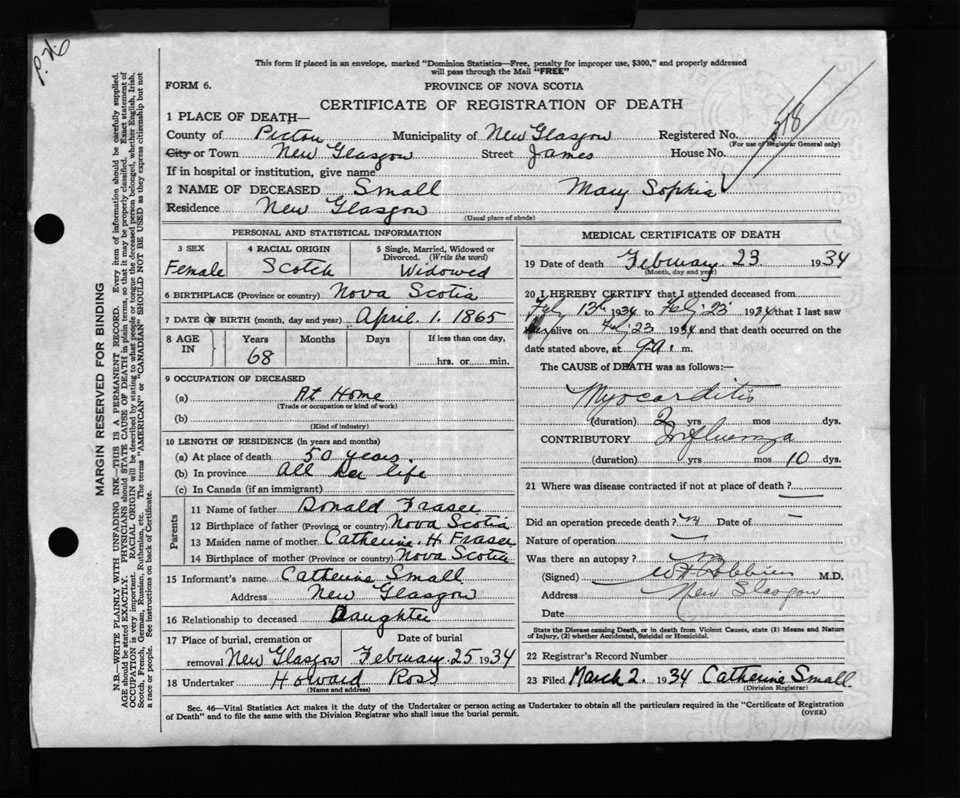 P.N.
This form if placed in an envelope, marked "Dominion Statistics—Free, penalty for improper use, $300," and properly addressed
will pass through the Mail "FREE"
FORM 6.
PROVINCE OF NOVA SCOTIA
CERTIFICATE OF REGISTRATION OF DEATH
1 PLACE OF DEATH—
County of Pictou Municipality of New Glasgow Registered No. 518
(For use of Registrar General only)
City or Town New Glasgow Street James House No.
If in hospital or institution, give name
2 NAME OF DECEASED Small Mary Sophia
Residence New Glasgow
(Usual place of abode)
PERSONAL AND STATISTICAL INFORMATION
3 SEX 4 RACIAL ORIGIN 5 Single, Married, Widowed or
Divorced. (Write the word)
Female Scotch Widowed
6 BIRTHPLACE (Province or country) Nova Scotia
7 DATE OF BIRTH (month, day and year) April 1. 1865
8 AGE IN Years Months Days If less than one day,
68 hrs. or min.
9 OCCUPATION OF DECEASED
(a) At Home
(Trade or occupation or kind of work)
(b)
(Kind of industry)
10 LENGTH OF RESIDENCE (in years and months)
(a) At place of death 50 years.
(b) In province all her life
(c) In Canada (if an immigrant)
Parents
11 Name of father Donald Fraser
12 Birthplace of father (Province or country) Nova Scotia
13 Maiden name of mother Catherine H Fraser
14 Birthplace of mother (Province or country) Nova Scotia
15 Informant's name Catherine Small
Address New Glasgow
16 Relationship to deceased Daughter
17 Place of burial, cremation or Date of burial
removal New Glasgow February 25 1934
18 Undertaker Howard Ross
(Name and address)
MEDICAL CERTIFICATE OF DEATH
19 Date of death February 23 1934
(Month, day and year)
20 I HEREBY CERTIFY that I attended deceased from
Feby 13th 1934 to Feby 23 1934 that I last saw
alive on Feby 23 1934 and that death occurred on
date stated above, at 9 a. m.
The CAUSE of DEATH was as follows:—
Myocarditis
(duration) 2 yrs mos dys.
CONTRIBUTORY Influenza
(duration) yrs mos 10 dys.
21 Where was disease contracted if not at place of death? —
Did an operation precede death? no Date of —
Nature of operation —
Was there an autopsy? no
(Signed) M.D.
Address New Glasgow
Date
State the Disease causing Death, or in death from Violent Causes, state (1) Means and Nature
of Injury, (2) whether Accidental, Suicidal or Homicidal.
22 Registrar's Record Number
23 Filed March 2. 1934 Catherine Small
(Division Registrar)
Sec. 46—Vital Statistics Act makes it the duty of the Undertaker or person acting as Undertaker to obtain all the particulars required in the "Certificate of Registration
of Death" and to file the same with the Division Registrar who shall issue the burial permit. (OVER)
MARGIN RESERVED FOR BINDING
N.B.—WRITE PLAINLY WITH UNFADING INK—THIS IS A PERMANENT RECORD. Every item of information should be carefully supplied.
AGE should be stated EXACTLY. PHYSICIANS should STATE CAUSE OF DEATH in plain terms, so that it may be properly classified. Exact statement of
OCCUPATION is very important. RACIAL ORIGIN will be described by stating to what people or tongue the deceased person belonged, whether English, Irish,
Scotch, French, German, Russian, Ruthenian, etc. The terms "AMERICAN" or "CANADIAN" SHOULD NOT BE USED as they express citizenship but not
a race or people. See instructions on back of Certificate.